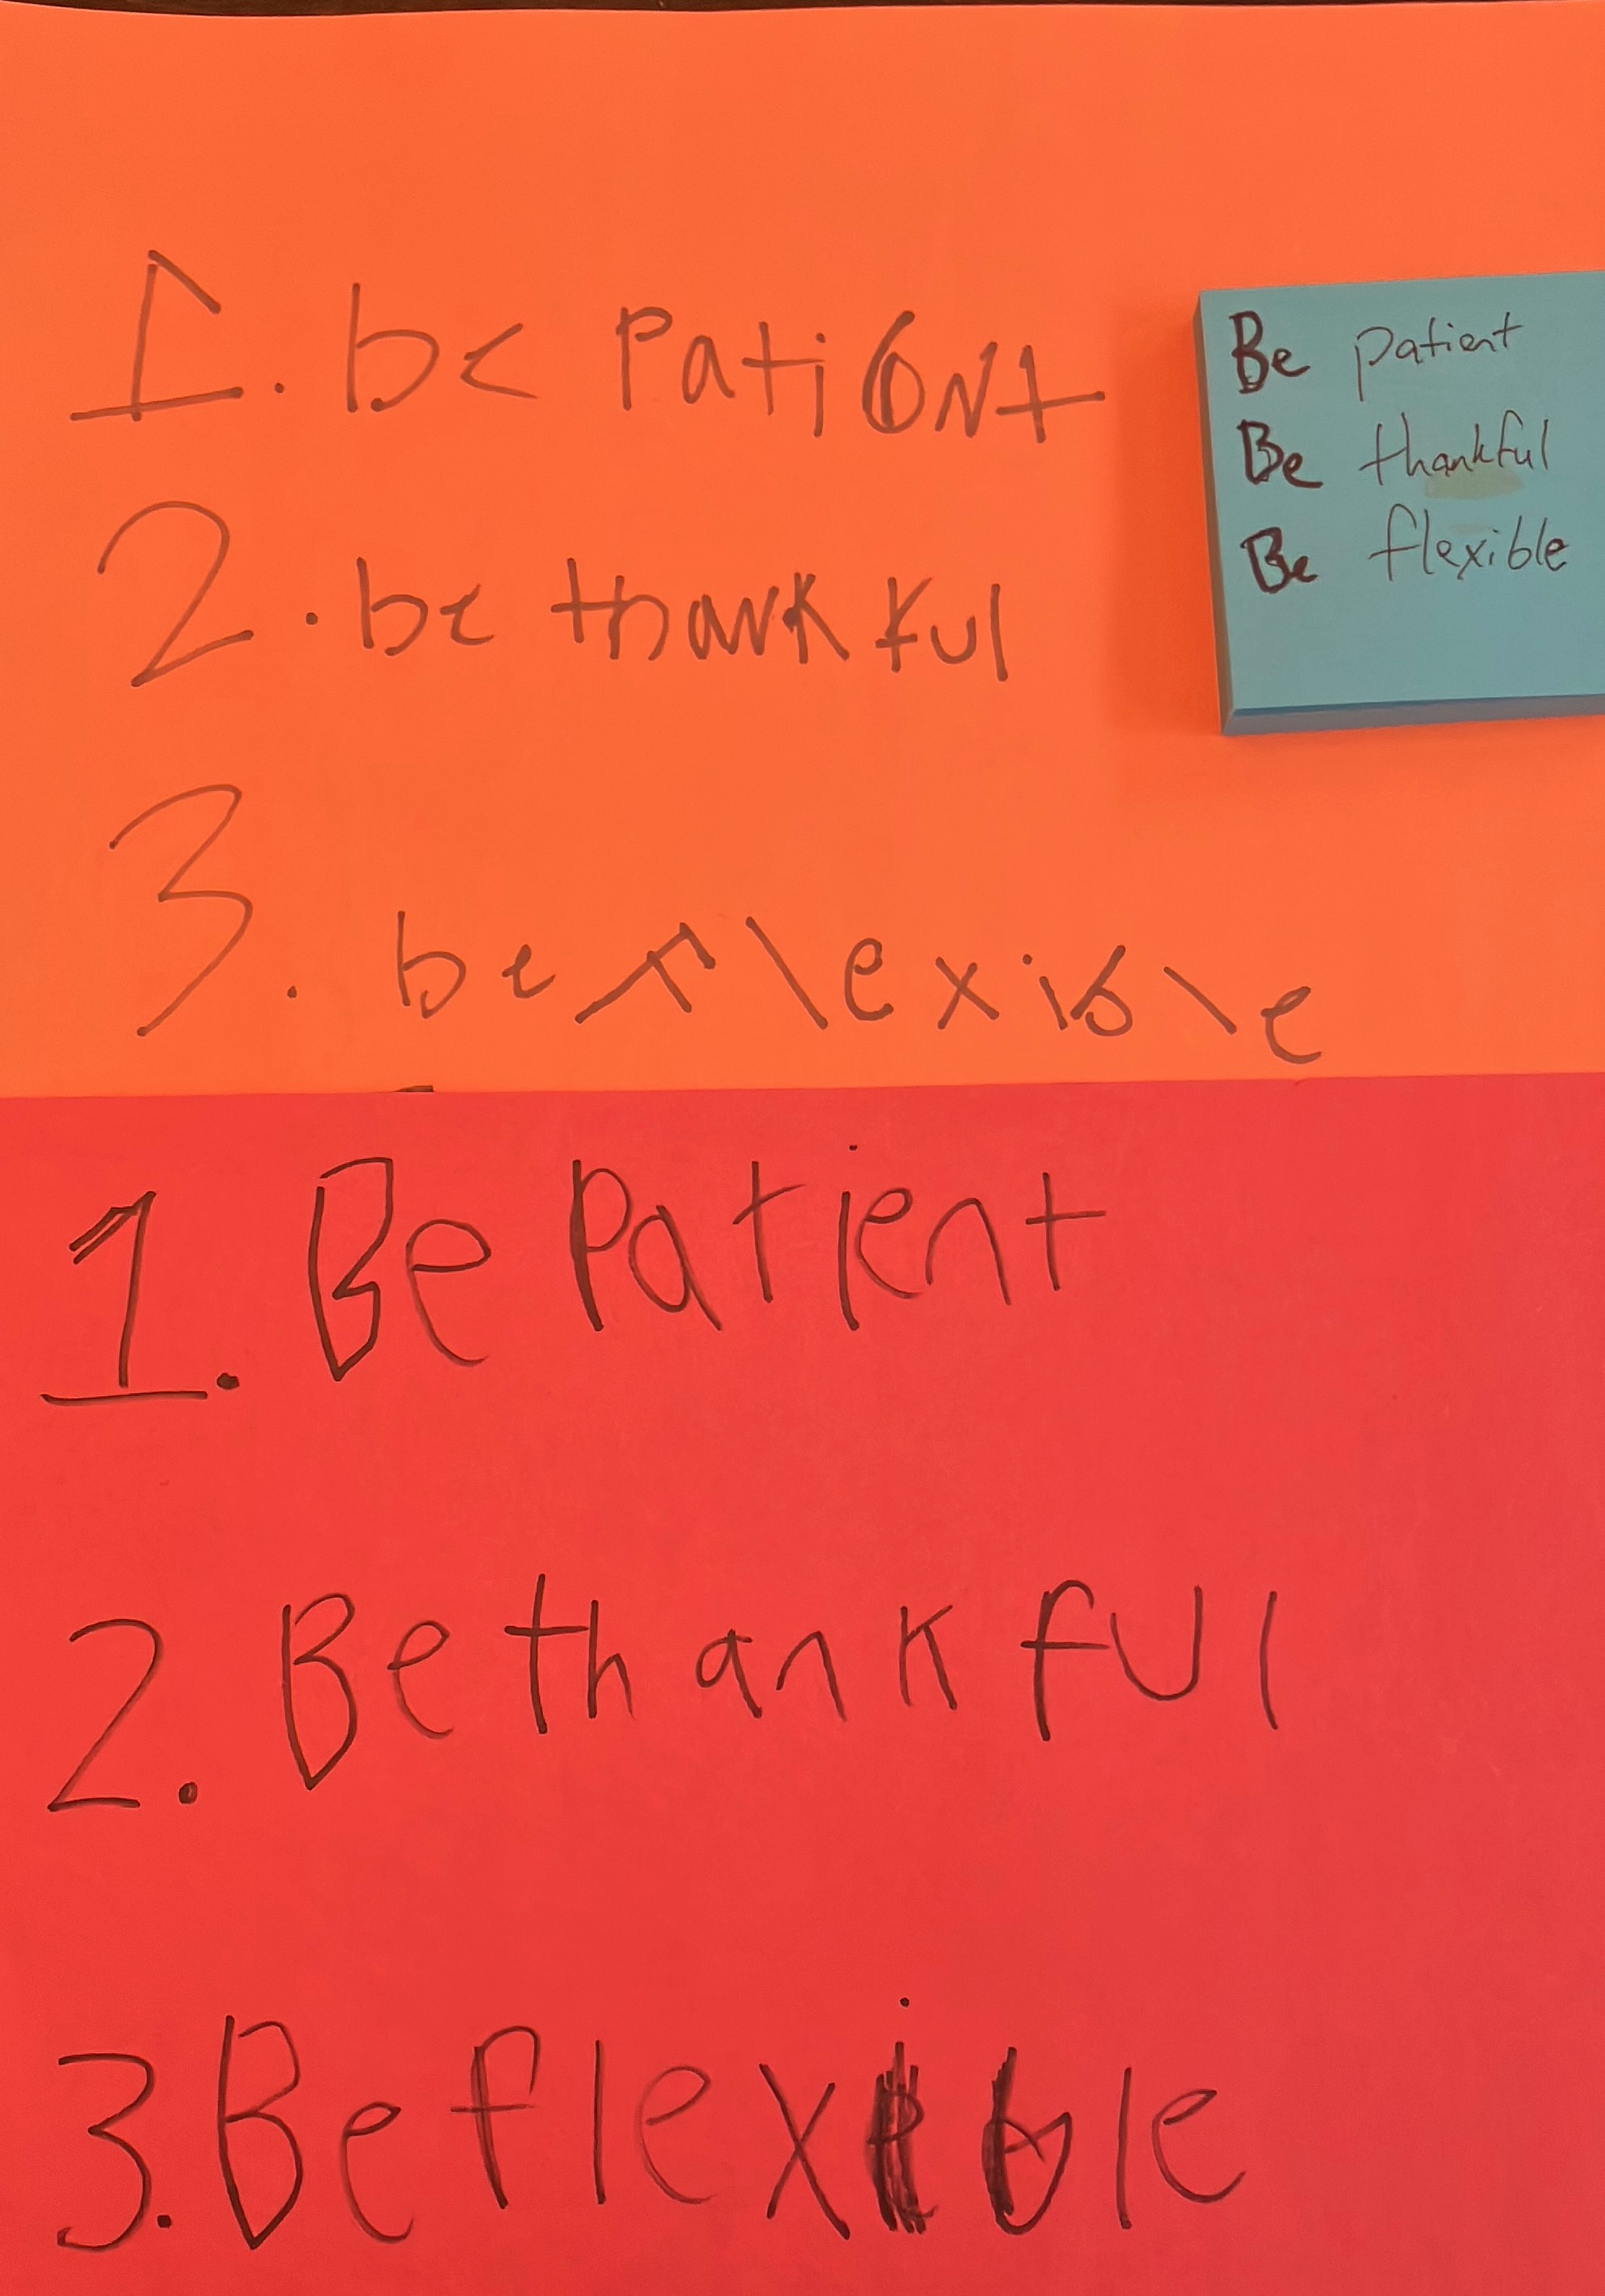 1. be Pationt
2. be thankful
3. be flexible
Be patient
Be thankful
Be flexible
1. Be Patient
2. Be thankful
3. Be flexible